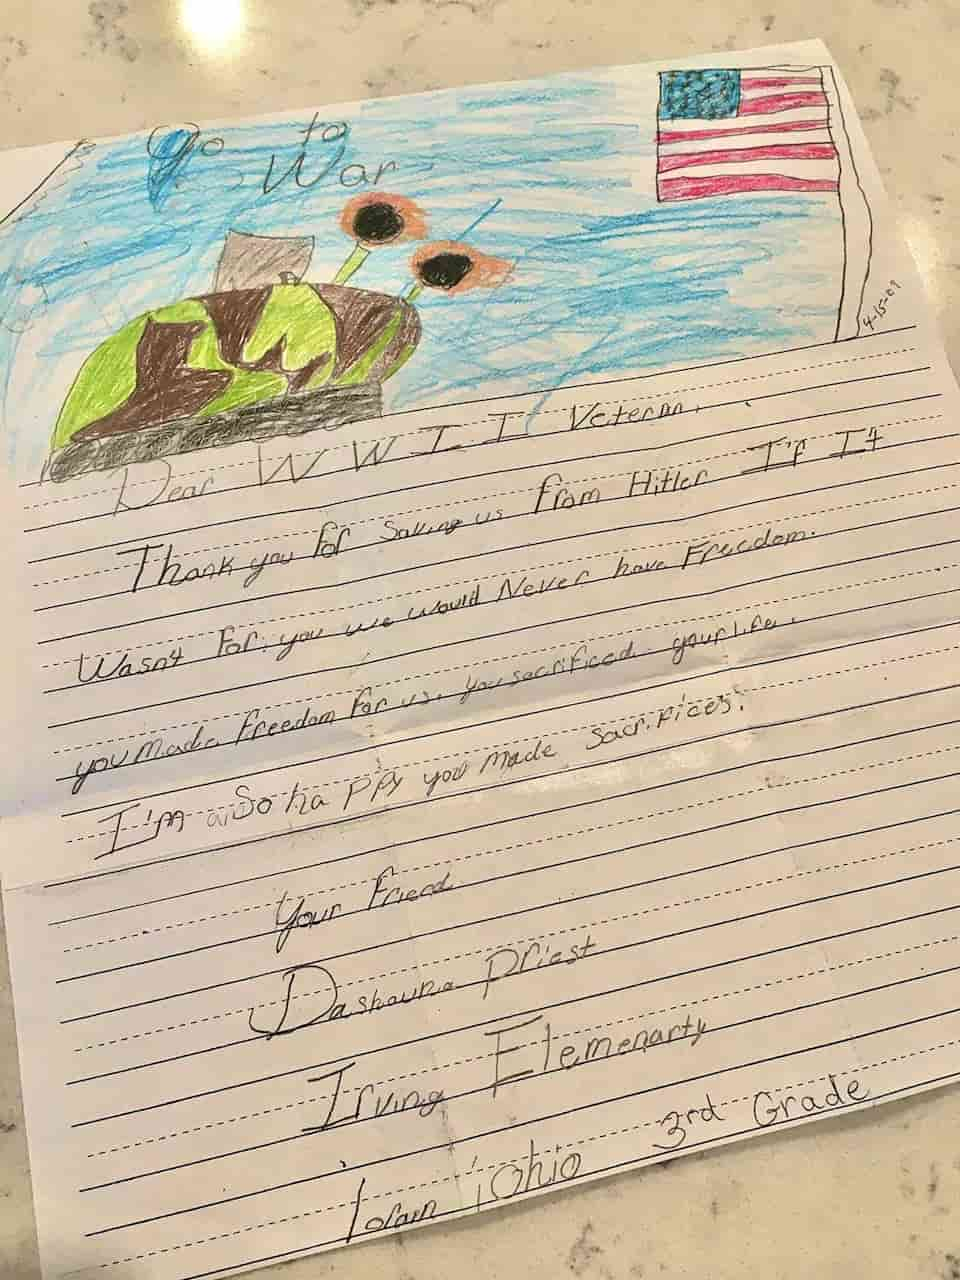 Go to
War
4-15-09
Dear WWII Veteran,
Thank you For Saving us From Hitler If It
Wasnt For you we would Never have Freedom.
you made freedom for us. you sacrificed your life.
I'm so ha ppy you made sacrifices!
Your Friend
Dashauna Priest
Irving Elemenarty
lorain, Ohio 3rd Grade